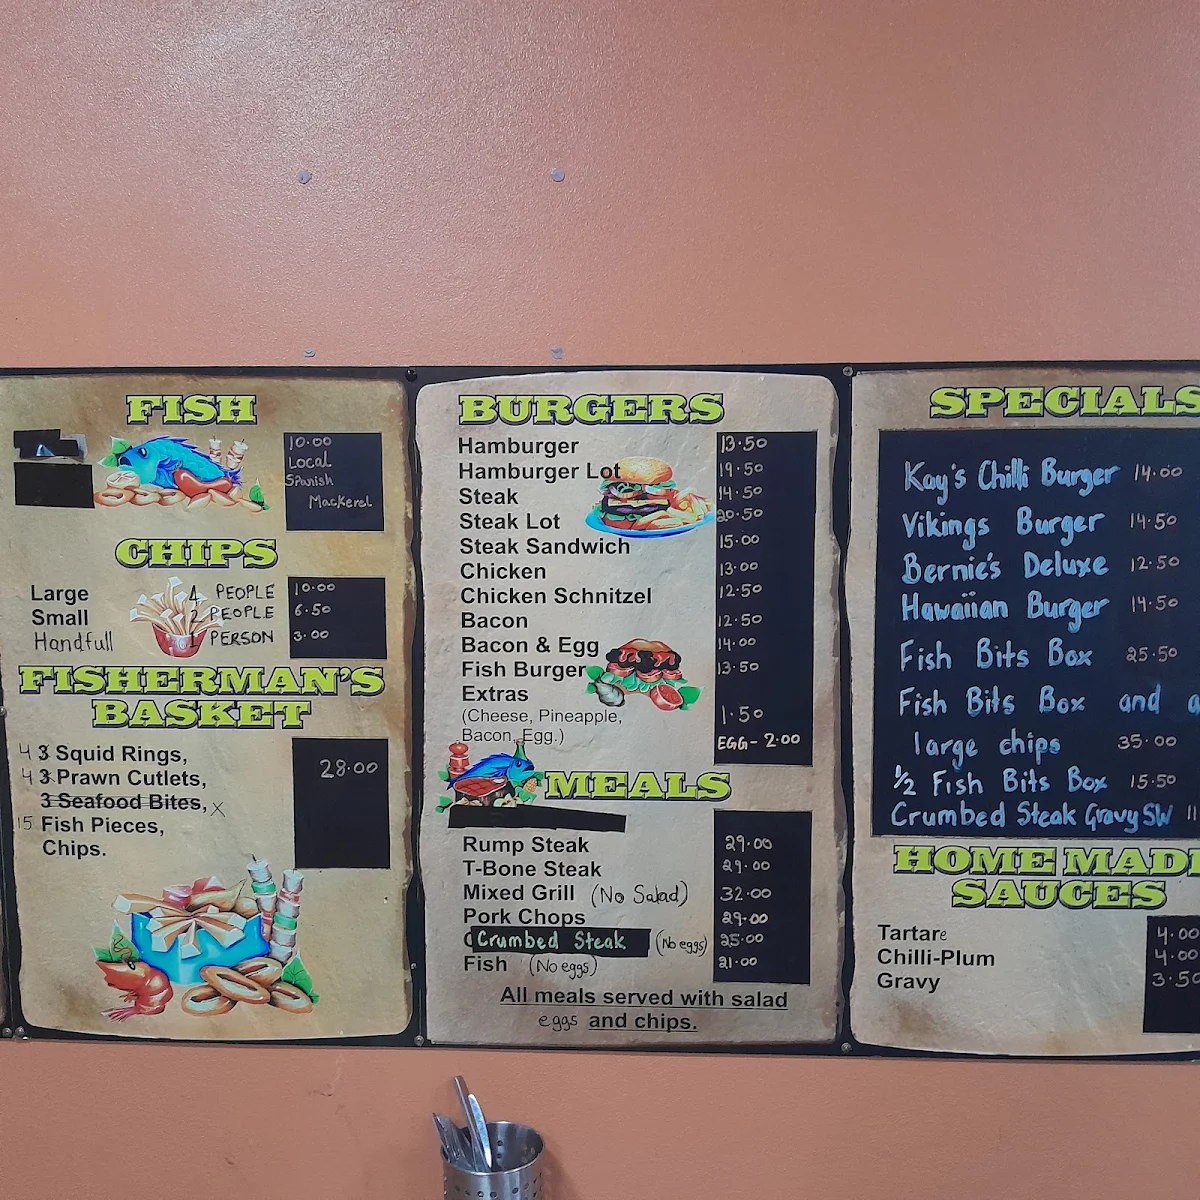 FISH
10.00
Local
Spanish
Mackerel
CHIPS
Large 4 PEOPLE 10.00
Small 2 PEOPLE 6.50
Handfull 1 PERSON 3.00
FISHERMAN'S
BASKET
4 3 Squid Rings, 28.00
4 3 Prawn Cutlets,
3 Seafood Bites, X
15 Fish Pieces,
Chips.
BURGERS
Hamburger 13.50
Hamburger Lot 19.50
Steak 14.50
Steak Lot 20.50
Steak Sandwich 15.00
Chicken 13.00
Chicken Schnitzel 12.50
Bacon 12.50
Bacon & Egg 14.00
Fish Burger 13.50
Extras
(Cheese, Pineapple, 1.50
Bacon, Egg.) EGG - 2.00
MEALS
Rump Steak 29.00
T-Bone Steak 29.00
Mixed Grill (No Salad) 32.00
Pork Chops 29.00
Crumbed Steak (No eggs) 25.00
Fish (No eggs) 21.00
All meals served with salad
eggs and chips.
SPECIALS
Kay's Chilli Burger 14.00
Vikings Burger 14.50
Bernie's Deluxe 12.50
Hawaiian Burger 14.50
Fish Bits Box 25.50
Fish Bits Box and a
large chips 35.00
1/2 Fish Bits Box 15.50
Crumbed Steak Gravy SW 11
HOME MADE
SAUCES
Tartare 4.00
Chilli-Plum 4.00
Gravy 3.50